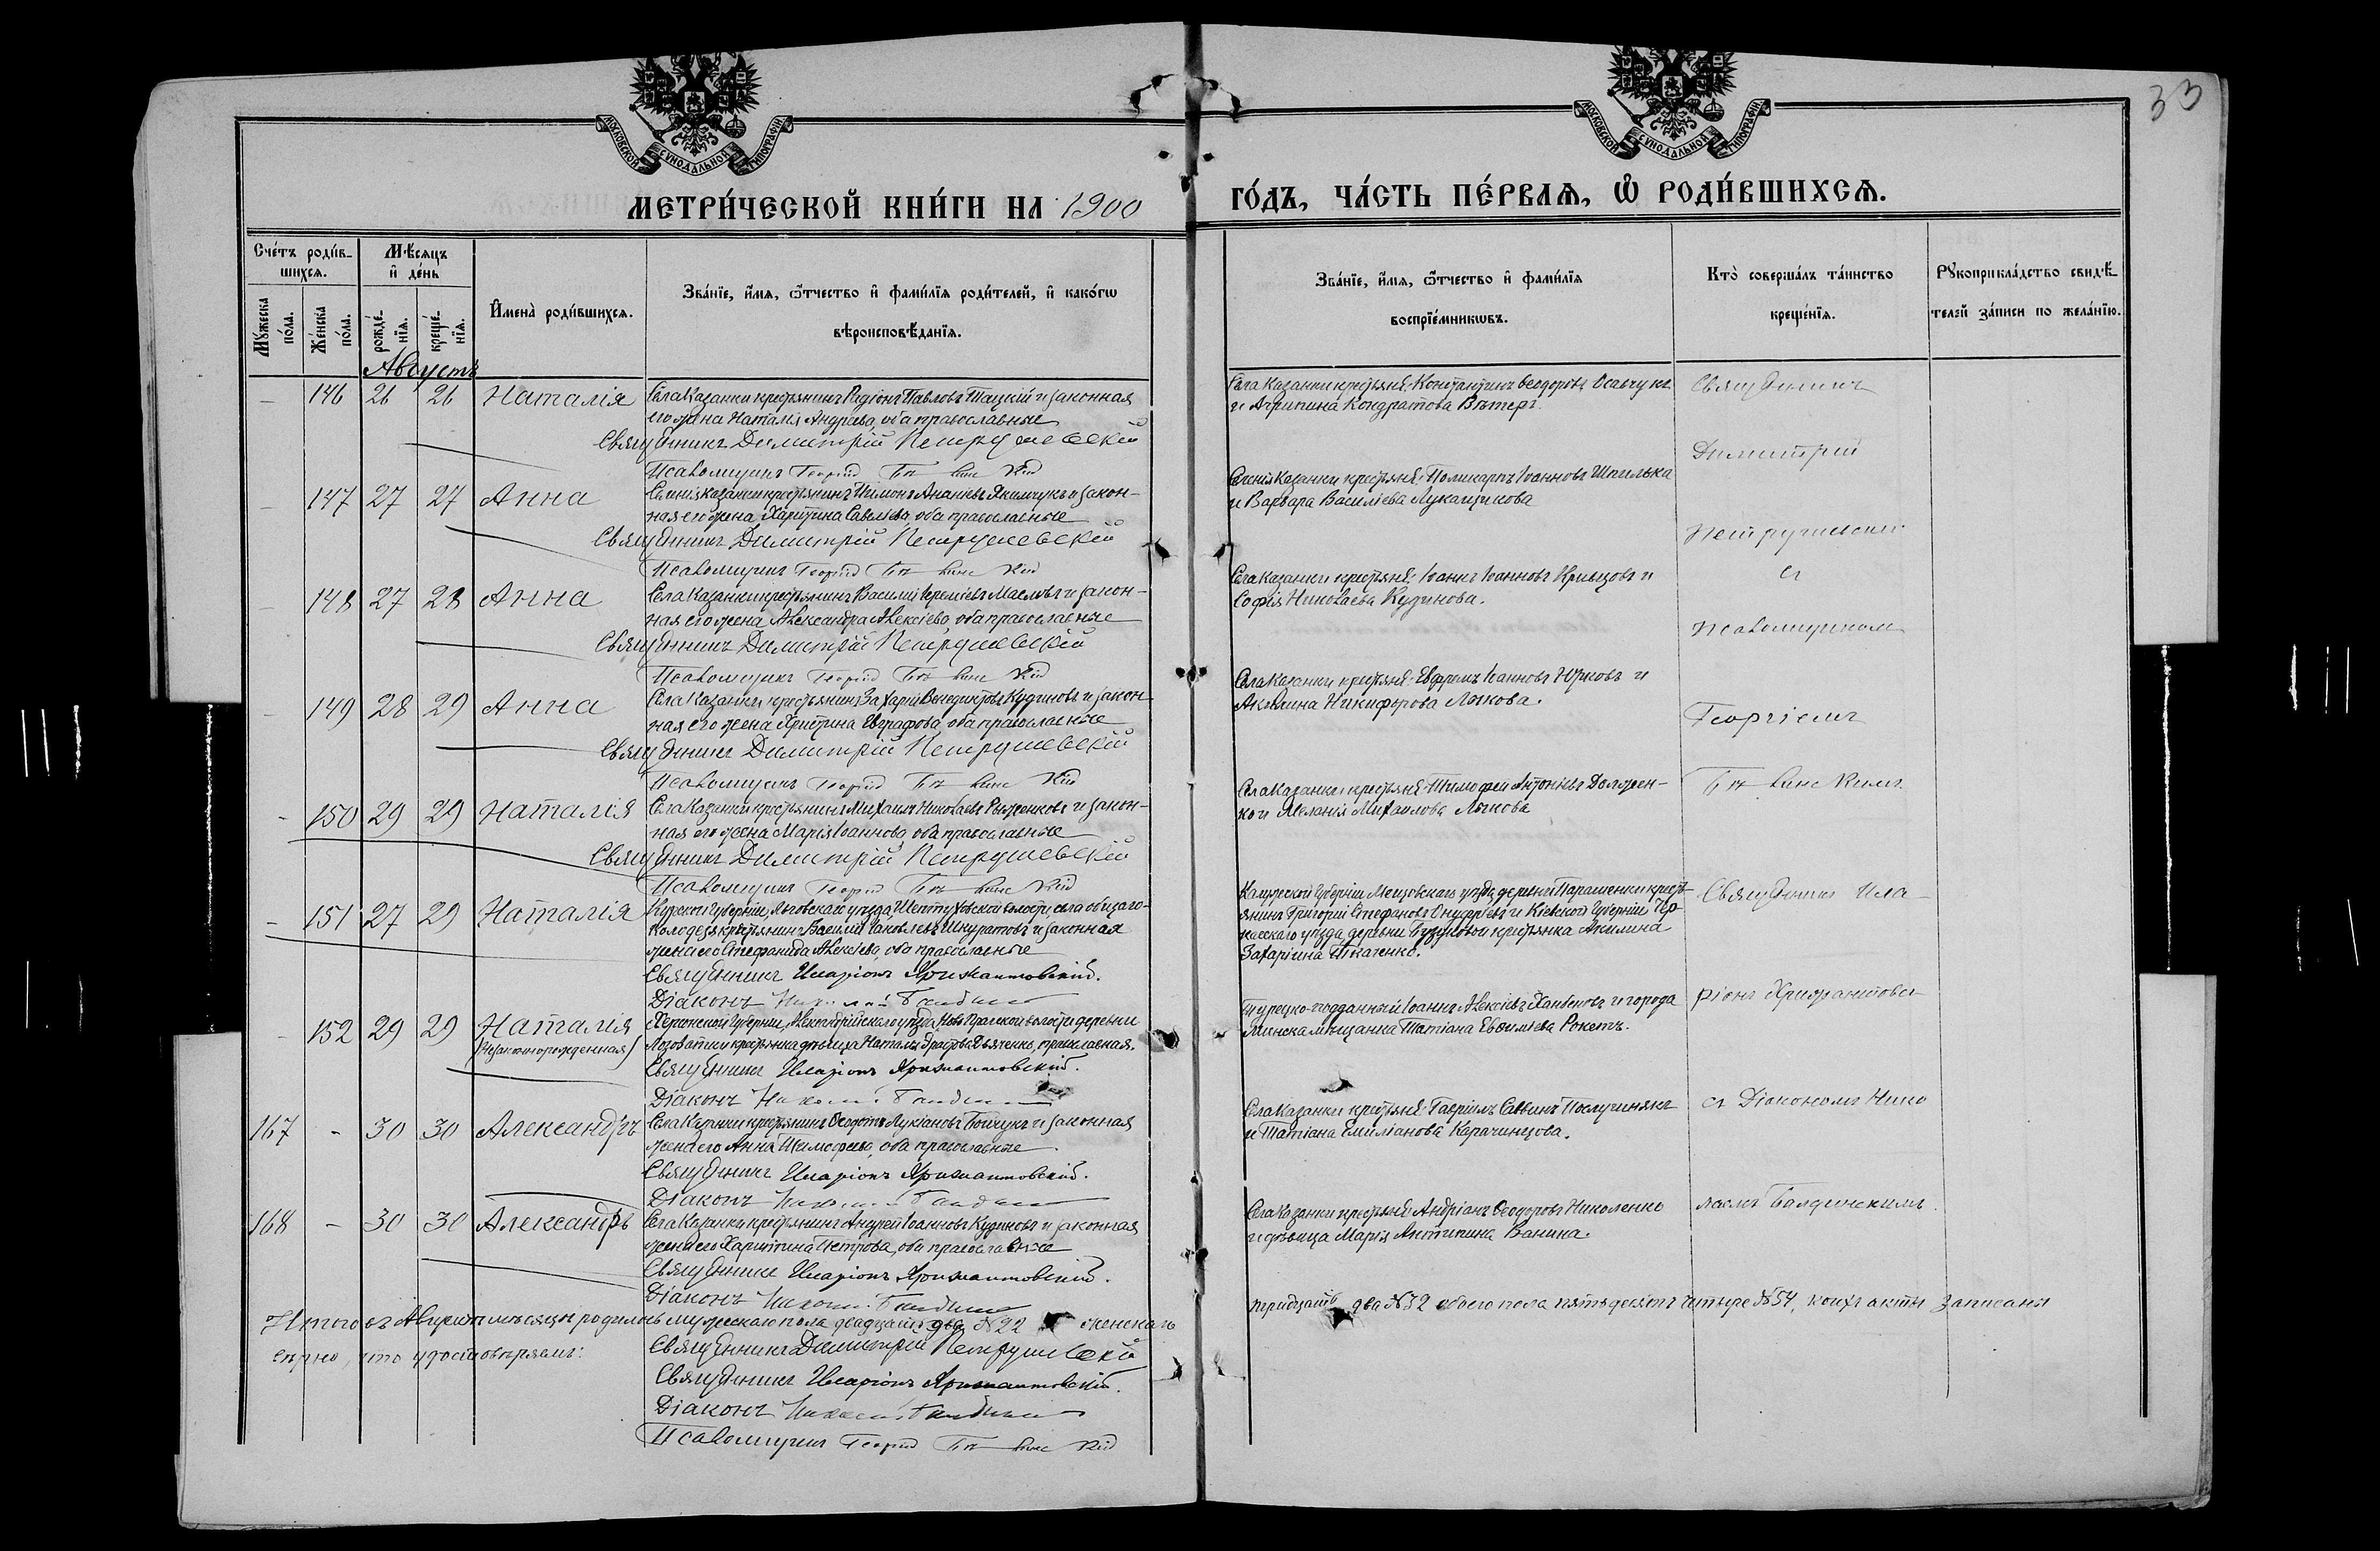 33
МОСКОВСКОЙ СѴНОДАЛЬНОЙ ТИПОГРАФІИ
МОСКОВСКОЙ СѴНОДАЛЬНОЙ ТИПОГРАФІИ
МЕТРИ́ЧЕСКОЙ КНИ́ГИ НА 1900 ГО́ДЪ, ЧА́СТЬ ПЕ́РВАѦ, Ѡ҆ РОДИ́ВШИХСѦ.
Сче́тъ роди́в-
шихсѧ.
Мꙋ́жеска по́ла.
Же́нска по́ла.
Мѣ́сѧцъ
и҆ де́нь
рожде́нїѧ.
креще́нїѧ.
И҆мена̀ роди́вшихсѧ.
Зва́нїе, и҆́мѧ, ѻ҆́тчество и҆ фами́лїѧ роди́телей, и҆ како́гѡ
вѣроисповѣ́данїѧ.
Зва́нїе, и҆́мѧ, ѻ҆́тчество и҆ фами́лїѧ
воспрїе́мникѡвъ.
Кто̀ соверша́лъ та́инство
креще́нїѧ.
Рꙋкоприкла́дство свидѣ́-
телей за́писи по жела́нїю.
Августъ
– 146 26 26 Наталія Села Казанки крестьянинъ Родіонъ Павловъ и законная
его жена Наталія Андреева, оба православные
Священникъ Димитрій Петрушевскій
Псаломщикъ Георгій
Села Казанки крестьяне: Константинъ Ѳеодоровъ
и Агрипина Кондратова Вѣтеръ.
Священникъ
Димитрій
– 147 27 27 Анна Казанки крестьянинъ Ананіевъ Якимчукъ и закон-
ная его жена Харитина Савелиева, оба православные
Священникъ Димитрій Петрушевскій
Псаломщикъ Георгій
Казанки крестьяне: Поликарпъ Іоанновъ Шпилька
и Варвара Василіева Лукащикова
Петрушевскій
– 148 27 28 Анна Села Казанки крестьянинъ Василій Маслевъ и закон-
ная его жена Александра Алексіева, оба православные
Священникъ Димитрій Петрушевскій
Псаломщикъ Георгій
Села Казанки крестьяне: Іоаннъ Іоанновъ Кривцовъ и
Софія Николаева Кудинова.
съ
псаломщикомъ
– 149 28 29 Анна Села Казанки крестьянинъ Захарій Венедиктовъ Кудиновъ и закон-
ная его жена Христина Евграфова, оба православные
Священникъ Димитрій Петрушевскій
Псаломщикъ Георгій
Села Казанки крестьяне: Ефремъ Іоанновъ Юрковъ и
Акилина Никифорова Лыкова.
Георгіемъ
- 150 29 29 Наталія Села Казанки крестьянинъ Михаилъ Николаевъ Рыженковъ и закон-
ная его жена Марія Іоаннова, оба православные
Священникъ Димитрій Петрушевскій
Псаломщикъ Георгій
Села Казанки крестьяне: Тимофей Антоніевъ Должен-
ко и Меланія Михаилова Лыкова
- 151 27 29 Наталія Курской губерніи, Льговскаго уѣзда, Шептуховской волости, села
Колодезь крестьянинъ Василій Іаковлевъ Шкуратовъ и законная
жена его Стефанида Алексіева, оба православные
Священникъ Иларіонъ Хрисантовскій.
Діаконъ
Калужской губерніи, Мещовскаго уѣзда, деревни Парашенки кресть-
янинъ Григорій Стефановъ Онуфріевъ и Кіевской губерніи, Чер-
касскаго уѣзда, деревни крестьянка Акилина
Захаріина Ткаченко.
Священникъ Ила-
- 152 29 29 Наталія
(незаконнорожденная)
Херсонской губерніи, Александрійскаго уѣзда, Ново Пражской волости деревни
Лозоватки крестьянка дѣвица Наталія Дьяченко, православная.
Священникъ Иларіонъ Хрисантовскій.
Діаконъ
Турецко-подданный Іоаннъ Алексіевъ и города
Минска мѣщанка Татіана Евѳиміева Рокетъ.
ріонъ Хрисантовск
167 - 30 30 Александръ Села Казанки крестьянинъ Ѳеодотъ Лукіановъ Бойчукъ и законная
жена его Анна Тимофеева, оба православные
Священникъ Иларіонъ Хрисантовскій.
Діаконъ
Села Казанки крестьяне: Гавріилъ Саввинъ
и Татіана Емиліанова Карачинцова.
съ Діакономъ Нико
168 – 30 30 Александръ Села Казанки крестьянинъ Андрей Іоанновъ Кудиновъ и законная
жена его Харитина Петрова, оба православные
Священникъ Иларіонъ Хрисантовскій.
Діаконъ
Села Казанки крестьяне: Андріанъ Ѳеодоровъ Николенко
и дѣвица Марія Антипина Ванина.
лаемъ
Итого въ Августѣ мѣсяцѣ родилось мужескаго пола двадцать два №22 женскаго
тридцать два №32 обоего пола пятьдесятъ четыре №54, коихъ акты записаны
вѣрно, что удостовѣряемъ:
Священникъ Димитрій Петрушевскій
Священникъ Иларіонъ Хрисантовскій.
Діаконъ
Псаломщикъ Георгій